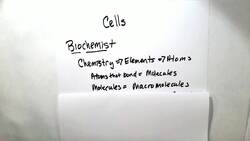 Cells
Biochemist
Chemistry => Elements => Atoms
Atoms that bond = Molecules
Molecules = Macromolecules